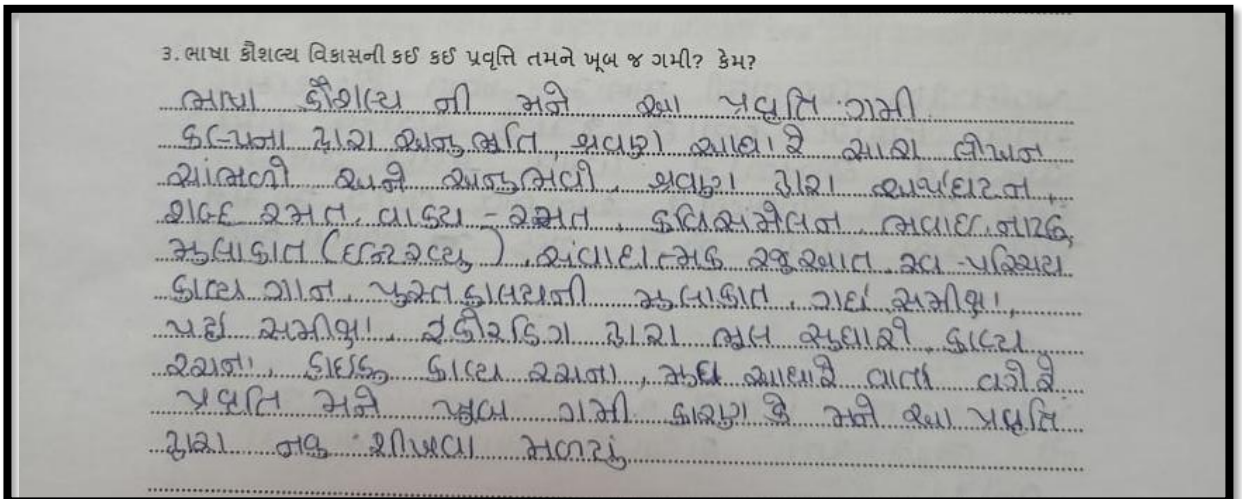 ૩. ભાષા કૌશલ્ય વિકાસની કઈ કઈ પ્રવૃત્તિ તમને ખૂબ જ ગમી? કેમ?
ભાષા કૌશલ્ય ની મને આ પ્રવૃતિ ગમી
કલ્પના દ્વારા અનુભૂતિ, શ્રવણ આધારે સારા લેખન
સાંભળો અને અનુભવો, શ્રવણ દ્વારા અર્થઘટન,
શબ્દ રમત, વાક્ય - રમત, કવિસંમેલન ભવાઇ, નાટક,
મુલાકાત (ઇન્ટરવ્યુ), સંવાદાત્મક રજુઆત, સ્વ-પરિચય
કાવ્ય ગાન, પુસ્તકાલયની મુલાકાત, ગદ્ય સમીક્ષા,
પદ્ય સમીક્ષા, રેકોરડિંગ દ્વારા ભુલ સુધારો, કાવ્ય
રચના, હાઇકુ કાવ્ય રચના, મુદ્દા આધારે વાર્તા વગેરે
પ્રવૃતિ મને ખુબ ગમી કારણ કે મને આ પ્રવૃતિ
દ્વારા નવુ શીખવા મળ્યું